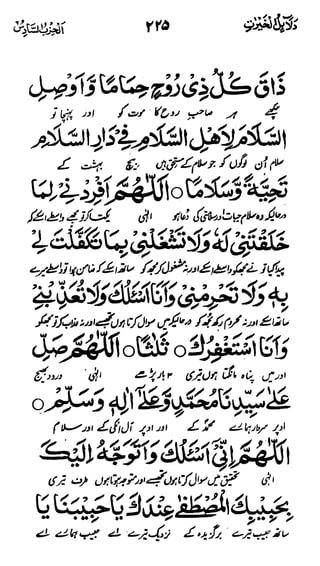 دلائل الخیرات ۲۲۵ الحزب السادس
ذَاقَ كُلُّ ذِيْ رُوْحٍ حِمَامًا وَّاَوْصِلِ
چکھے ہر صاحب روح کا موت کو اور پہنچا تو
السَّلَامَ لِاَهْلِ السَّلَامِ فِيْ دَارِ السَّلَامِ
سلام اُن لوگوں کو جو سلام کے مستحق ہیں بیچ بہشت کے
تَحِيَّةً وَّسَلَامًا ○ اَللّٰهُمَّ اَفْرِدْنِيْ لِمَا
درحالیکہ وہ سلام حیات و سلامتی کی دُعا ہو الٰہی یکتا کر تو مجھے واسطے اسکے کہ
خَلَقْتَنِيْ لَهٗ وَلَا تَشْغَلْنِيْ بِمَا تَكَفَّلْتَ لِيْ
پیدا کیا تو نے مجھ کو واسطے اسکے اور نہ مشغول کر مجھ کو ساتھ اسکے کہ ضامن ہوا تو واسطے میرے
بِهٖ وَلَا تَحْرِمْنِيْ وَاَنَا اَسْئَلُكَ وَلَا تُعَذِّبْنِيْ
ساتھ اسکے اور نہ محروم رکھ مجھ کو درحالیکہ میں سوال کرتا ہوں تجھ سے اور نہ عذاب کر تو مجھ کو
وَاَنَا اَسْتَغْفِرُكَ ○ ثَلٰثًا ○ اَللّٰهُمَّ صَلِّ
اور میں پناہ مانگتا ہوں تیری ۳ بار پڑھے الٰہی درود بھیج
عَلٰى سَيِّدِنَا مُحَمَّدٍ وَّعَلٰٓى اٰلِهٖ وَسَلِّمْ ○
اوپر سردار ہمارے محمدؐ کے اور اوپر آل انکی کے اور سلام
اَللّٰهُمَّ اِنِّيْٓ اَسْئَلُكَ وَاَتَوَجَّهُ اِلَيْكَ
الٰہی تحقیق میں سوال کرتا ہوں تجھ سے اور متوجہ ہوتا ہوں طرف تیری
بِحَبِيْبِكَ الْمُصْطَفٰى عِنْدَكَ يَا حَبِيْبَنَا يَا
ساتھ حبیب تیرے کے برگزیدہ کے نزدیک تیرے اے حبیب ہمارے اے